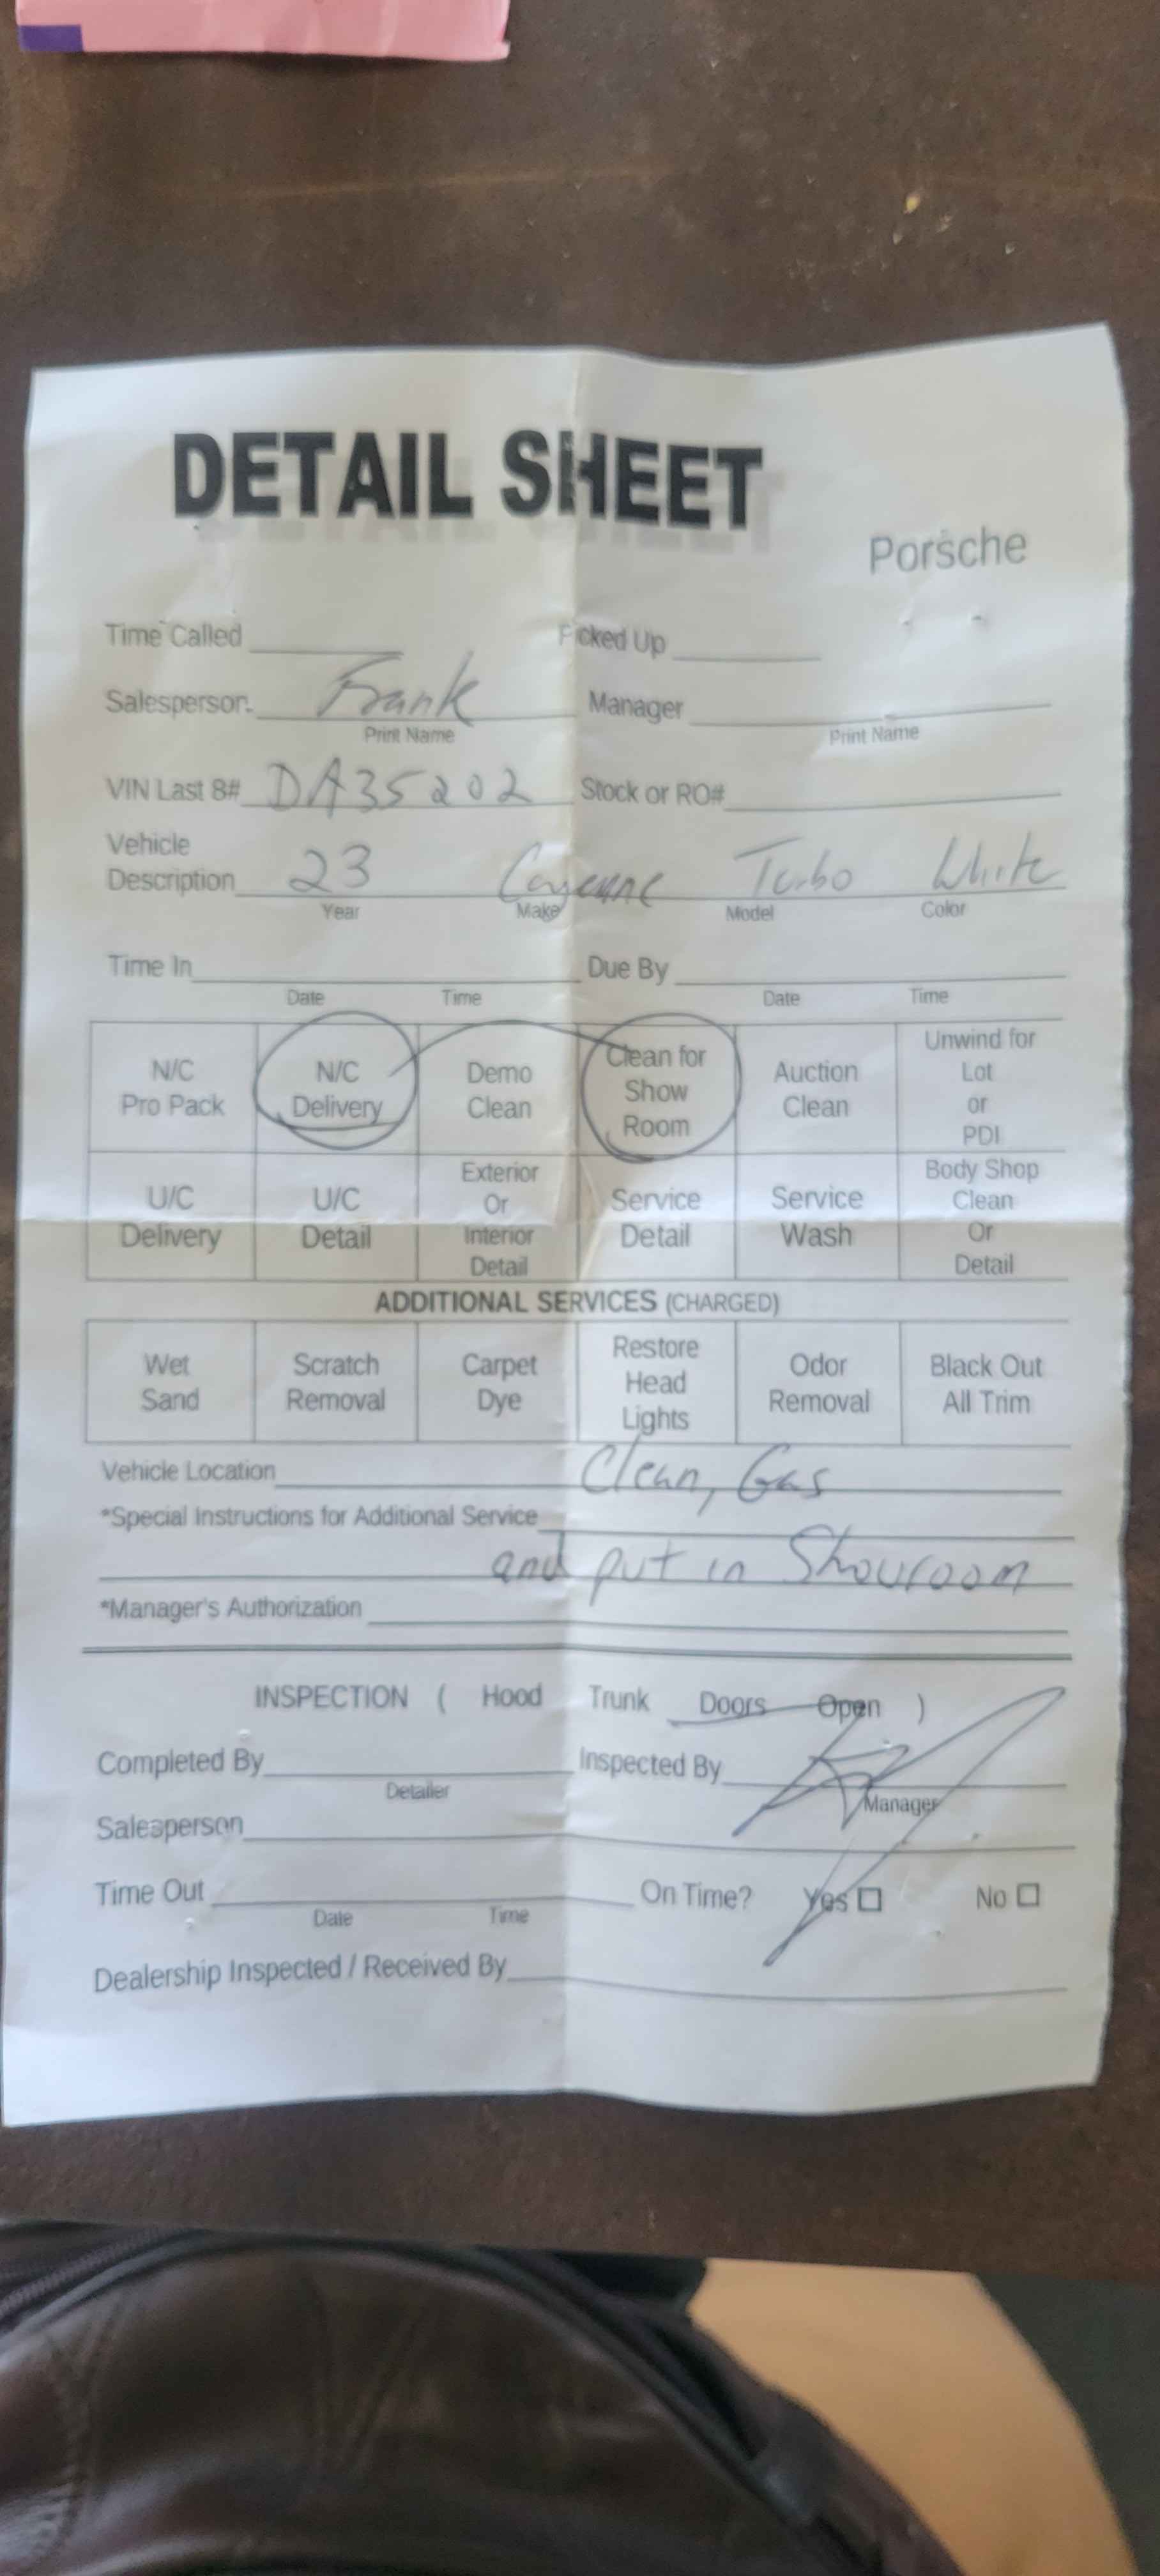 DETAIL SHEET
Porsche
Time Called Picked Up
Salesperson Frank Manager
Print Name Print Name
VIN Last 8# DA35202 Stock or RO#
Vehicle
Description 23 Cayenne Turbo White
Year Make Model Color
Time In Due By
Date Time Date Time
N/C Pro Pack N/C Delivery Demo Clean Clean for Show Room Auction Clean Unwind for Lot or PDI
U/C Delivery U/C Detail Exterior Or Interior Detail Service Detail Service Wash Body Shop Clean Or Detail
ADDITIONAL SERVICES (CHARGED)
Wet Sand Scratch Removal Carpet Dye Restore Head Lights Odor Removal Black Out All Trim
Vehicle Location Clean, Gas
*Special Instructions for Additional Service
and put in Showroom
*Manager's Authorization
INSPECTION ( Hood Trunk Doors Open )
Completed By Inspected By
Detailer Manager
Salesperson
Time Out On Time? Yes No
Date Time
Dealership Inspected / Received By